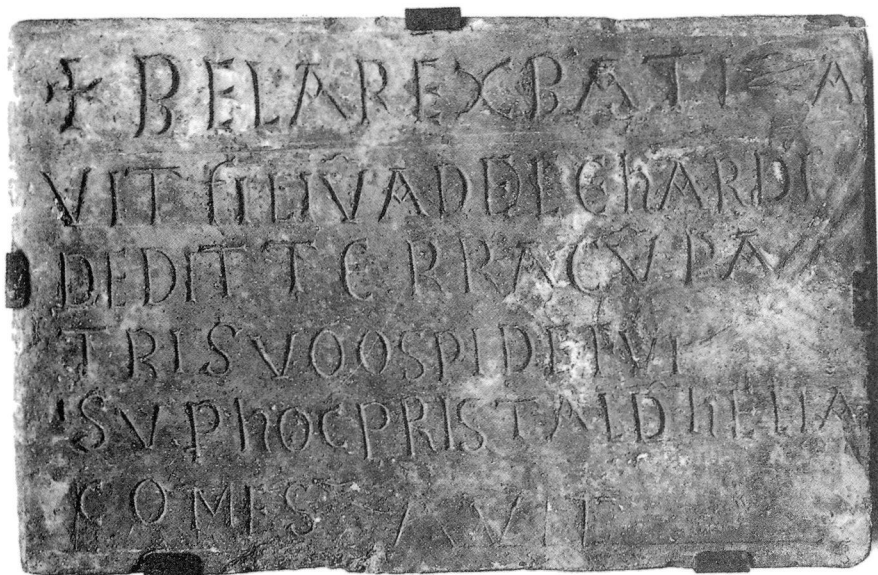 ✝ BELAREXBATIZA
VIT filIV̄ADELChARDI
DEDIT TERRACV̄ PA
TRISVOOSPIDEI
SV.PhOCPRISTALD̄hELIA
COMES AVIT